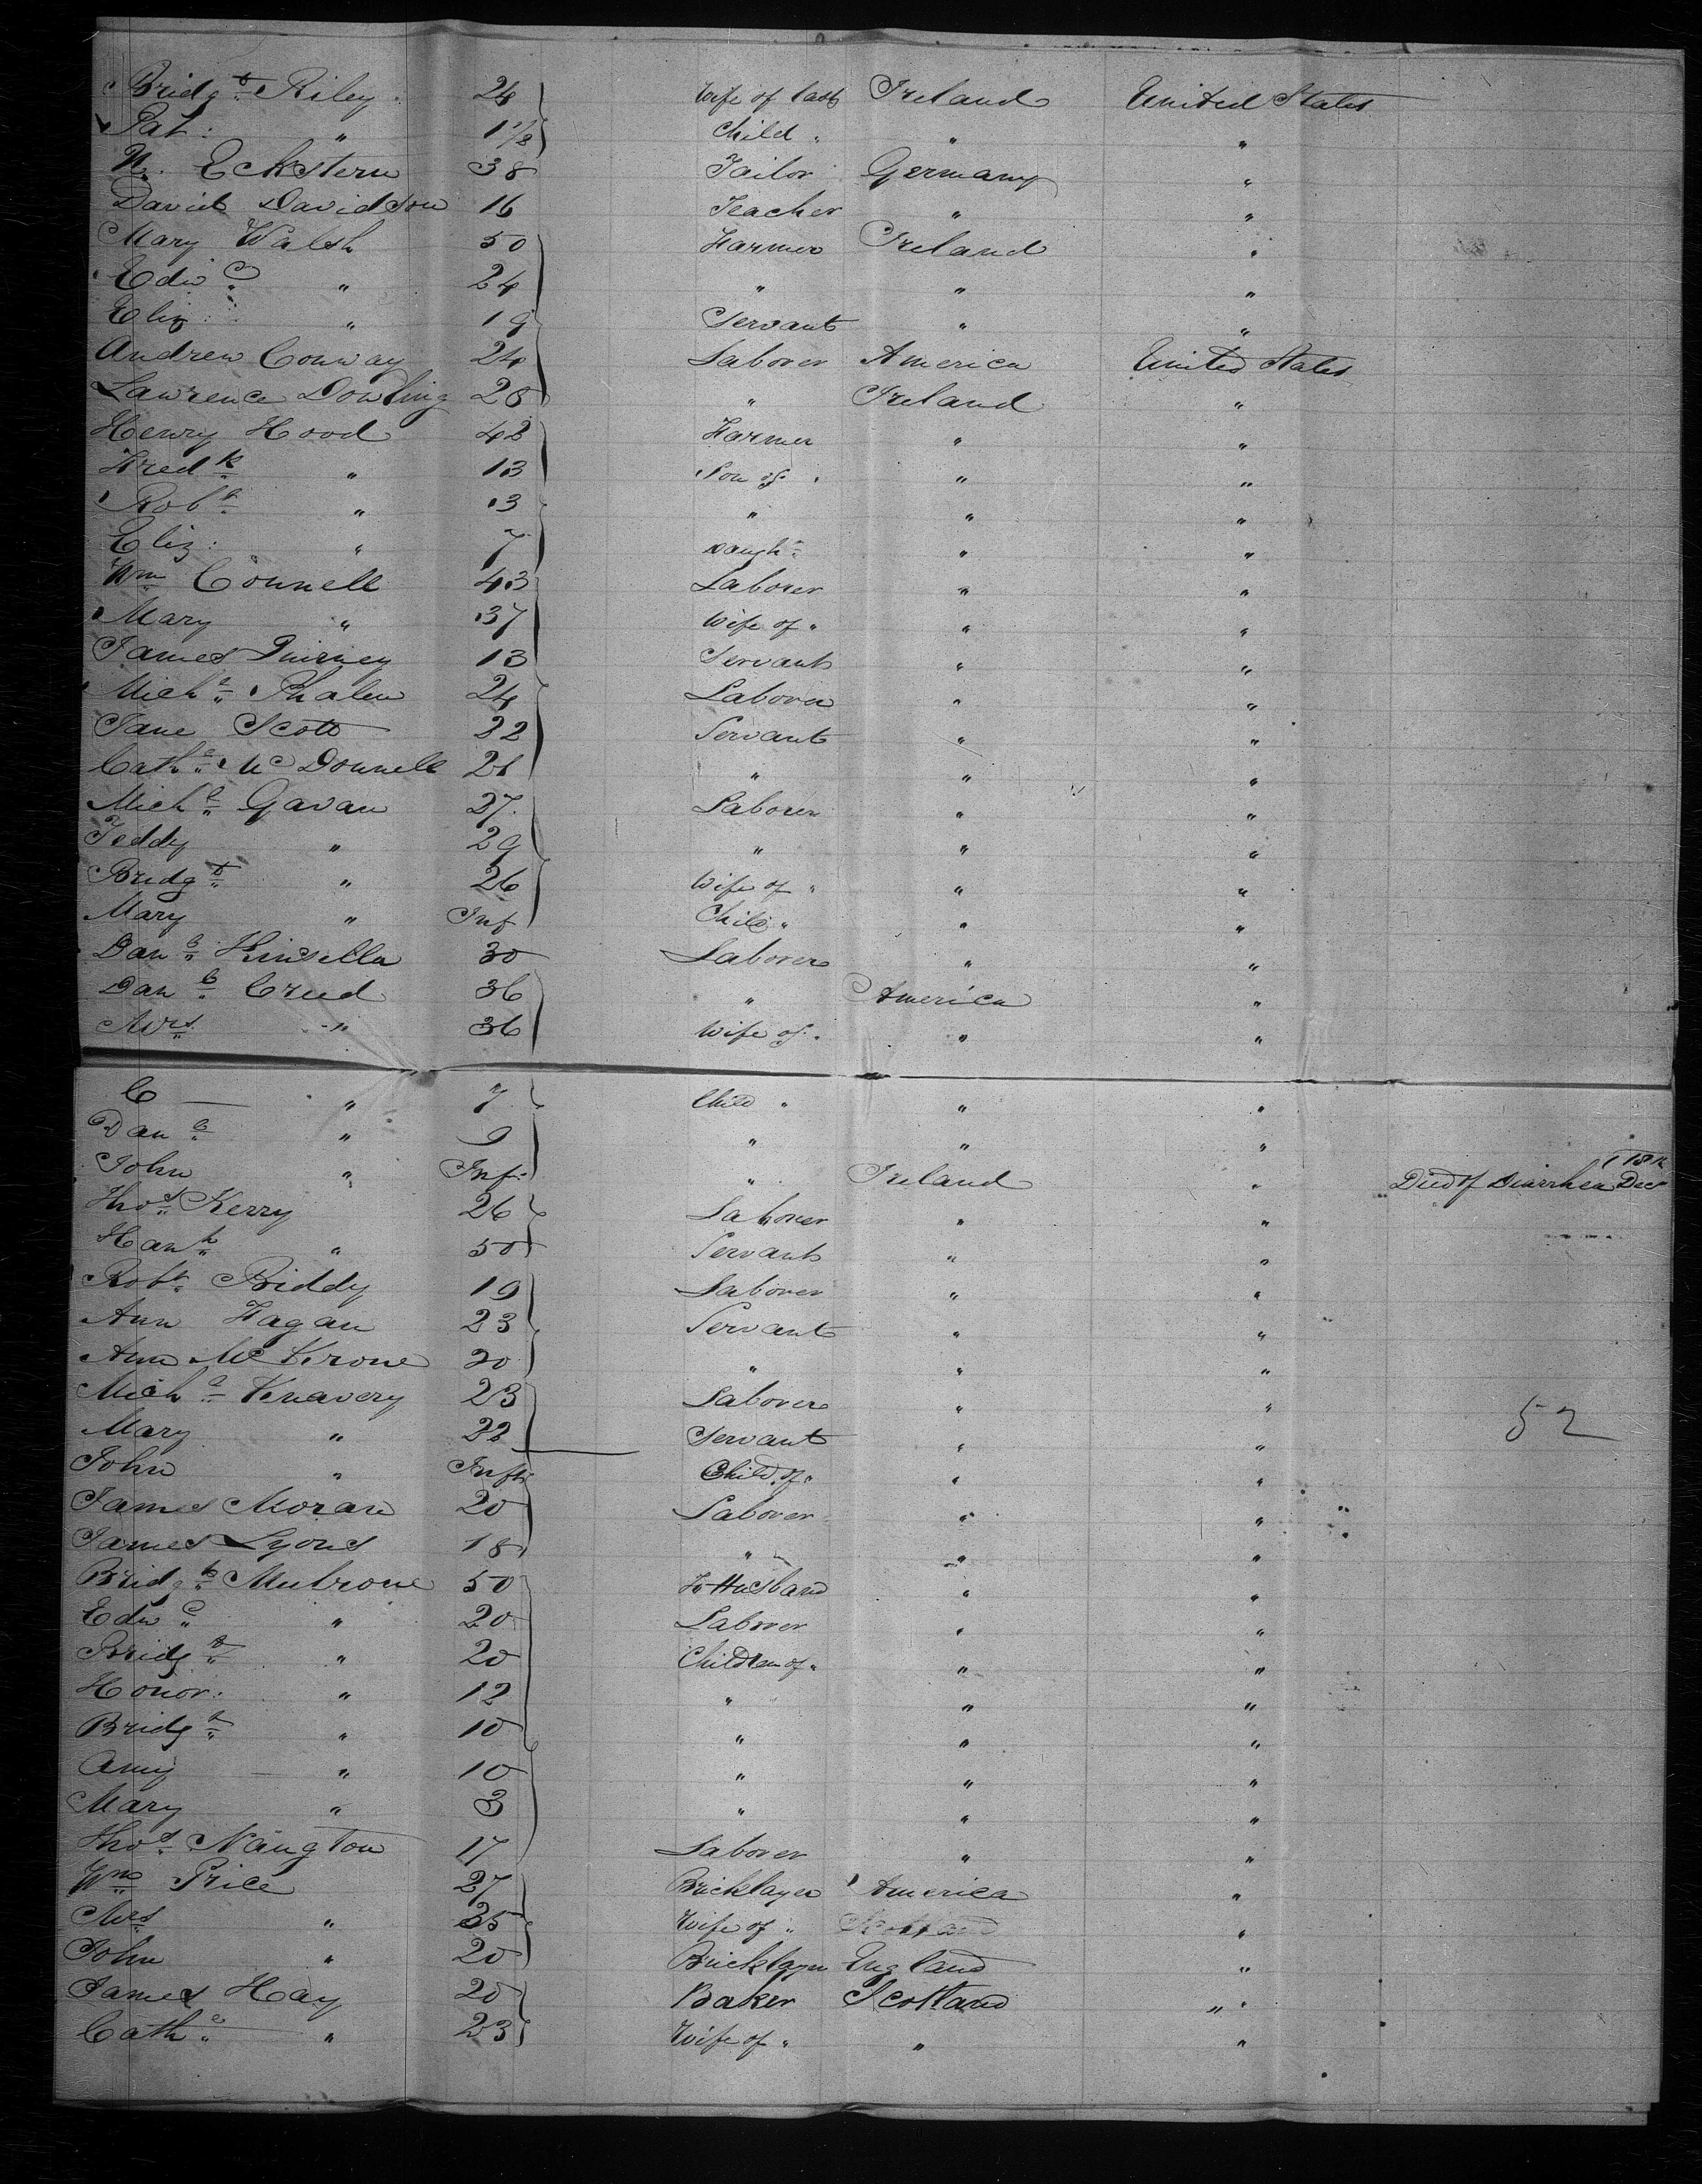 Bridgt Riley 24 Wife of last Ireland United States
Pat: " 1 1/2 Child " " "
N. Eckstern 38 Tailor Germany "
David Davidson 16 Teacher " "
Mary Walsh 50 Farmer Ireland "
Edwd " 24 " " "
Eliz: " 19 Servant " "
Andrew Conway 24 Laborer America United States
Lawrence Dowling 28 " Ireland "
Henry Hood 42 Farmer " "
Fredk " 13 Son of " " "
Robt " 13 " " "
Eliz: " 7 Daughr " "
Wm Connell 43 Laborer " "
Mary " 37 Wife of " " "
James 13 Servant " "
Michl Phalen 24 Laborer " "
Jane Scott 22 Servant " "
Cathe McDonnell 21 " " "
Michl Gavan 27 Laborer " "
Teddy " 29 " " "
Bridgt " 26 Wife of " " "
Mary " Inf Child " " "
Danl Kinsella 30 Laborer " "
Danl Creed 36 " America "
Mrs " 36 Wife of " " "
C " 7 Child " " "
Danl " 9 " " "
John " Inf: " Ireland " Died of Diarrhea Decr
Thos Kerry 26 Laborer " "
Hanh " 50 Servant " "
Robt Briddy 19 Laborer " "
Ann Fagan 23 Servant " "
Ann McKrone 20 " " "
Michl Knavery 23 Laborer " " 52
Mary " 22 Servant " "
John " Inft Child of " " "
James Moran 20 Laborer " "
James Lyons 18 " " "
Bridgt Mulrone 50 To Husband " "
Edwd " 20 Laborer " "
Bridgt " 20 Children of " " "
Honor: " 12 " " "
Bridgt " 10 " " "
Amy " 10 " " "
Mary " 3 " " "
Thos Naugton 17 Laborer " "
Wm Price 27 Bricklayer America "
Mrs " 25 Wife of " Scotland "
John " 20 Bricklayer England "
James Hay 20 Baker Scotland "
Cathe " 23 Wife of " " "